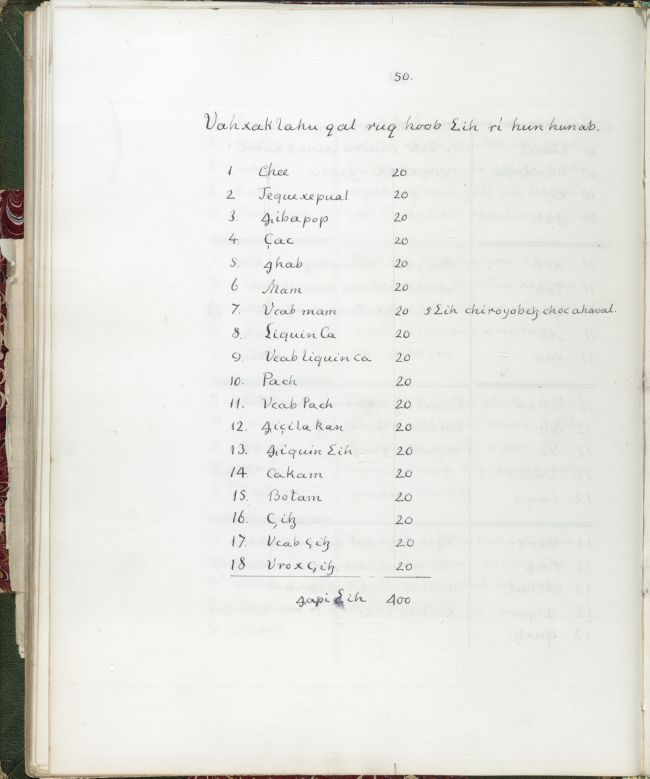 50.
Vahxaklahu qal ruq hoob Ɛih ri hun hunab.
1. Chee 20
2 Tequexepual 20
3. ꜭibapop 20
4. Çac 20
5. ꜭhab 20
6 Mam 20
7. Vcab mam 20 5 Ɛih chiroyobeꜩ chocahaval.
8. LiquinCa 20
9. Vcab Liquin ca 20
10. Pach 20
11. Vcab Pach 20
12. ꜭiçilakan 20
13. ꜭiquin Ɛih 20
14 Cakam 20
15. Botam 20
16. Çiꜩ 20
17. Vcab Çiꜩ 20
18 Vrox Çiꜩ. 20
ꜭapi Ɛih 400